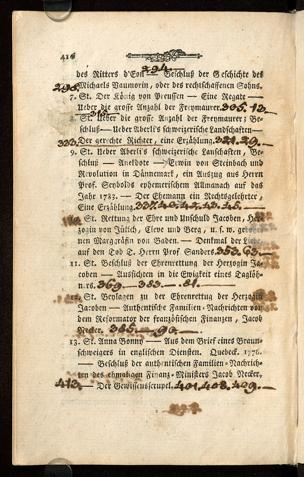 416
des Ritters d'Eon 294. Beschluß der Geschichte des
298. Michaels Vaumorin, oder des rechtschaffenen Sohns.
7. St. Der König von Preussen — Eine Regate —
Ueber die grosse Anzahl der Freymaurer. 305. 12.
8. St. Ueber die grosse Anzahl der Freymaurer; Be-
schluß — Ueber Aberli's schweizerische Landschaften —
Der gerechte Richter, eine Erzählung. 321. 29.
9. St. Ueber Aberli's schweizerische Lanschaften, Be-
schluß — Anekdote — Erwin von Steinbach und
Revolution in Dännemark, ein Auszug aus Herrn
Prof. Seybolds ephemerischem Allmanach auf das
Jahr 1783. — Der Ehemann ein Rechtsgelehrter,
Eine Erzählung.
10. St. Rettung der Ehre und Unschuld Jacoben, Her-
zogin von Jülich, Cleve und Berg, u. s. w. gebohr-
nen Margräfin von Baden. — Denkmal der Liebe,
auf den Tod D. Herrn Prof Sanders. 353. 63.
11. St. Beschluß der Ehrenrettung der Herzogin Ja-
coben — Aussichten in die Ewigkeit eines Taglöh-
ners. 369. — 383. — 81.
12. St. Beylagen zu der Ehrenrettung der Herzogin
Jacoben — Authentische Familien-Nachrichten von
dem Reformator der französischen Finanzen, Jacob
Necker. 385. — 90.
13. St. Anna Bonny — Aus dem Brief eines Braun-
schweigers in englischen Diensten. Quebeck. 1776.
— Beschluß der authentischen Familien-Nachrich-
ten des ehmaligen Finanz-Ministers Jacob Necker.
413. — Der Gewissensscrupel. 401. 408. 409. —